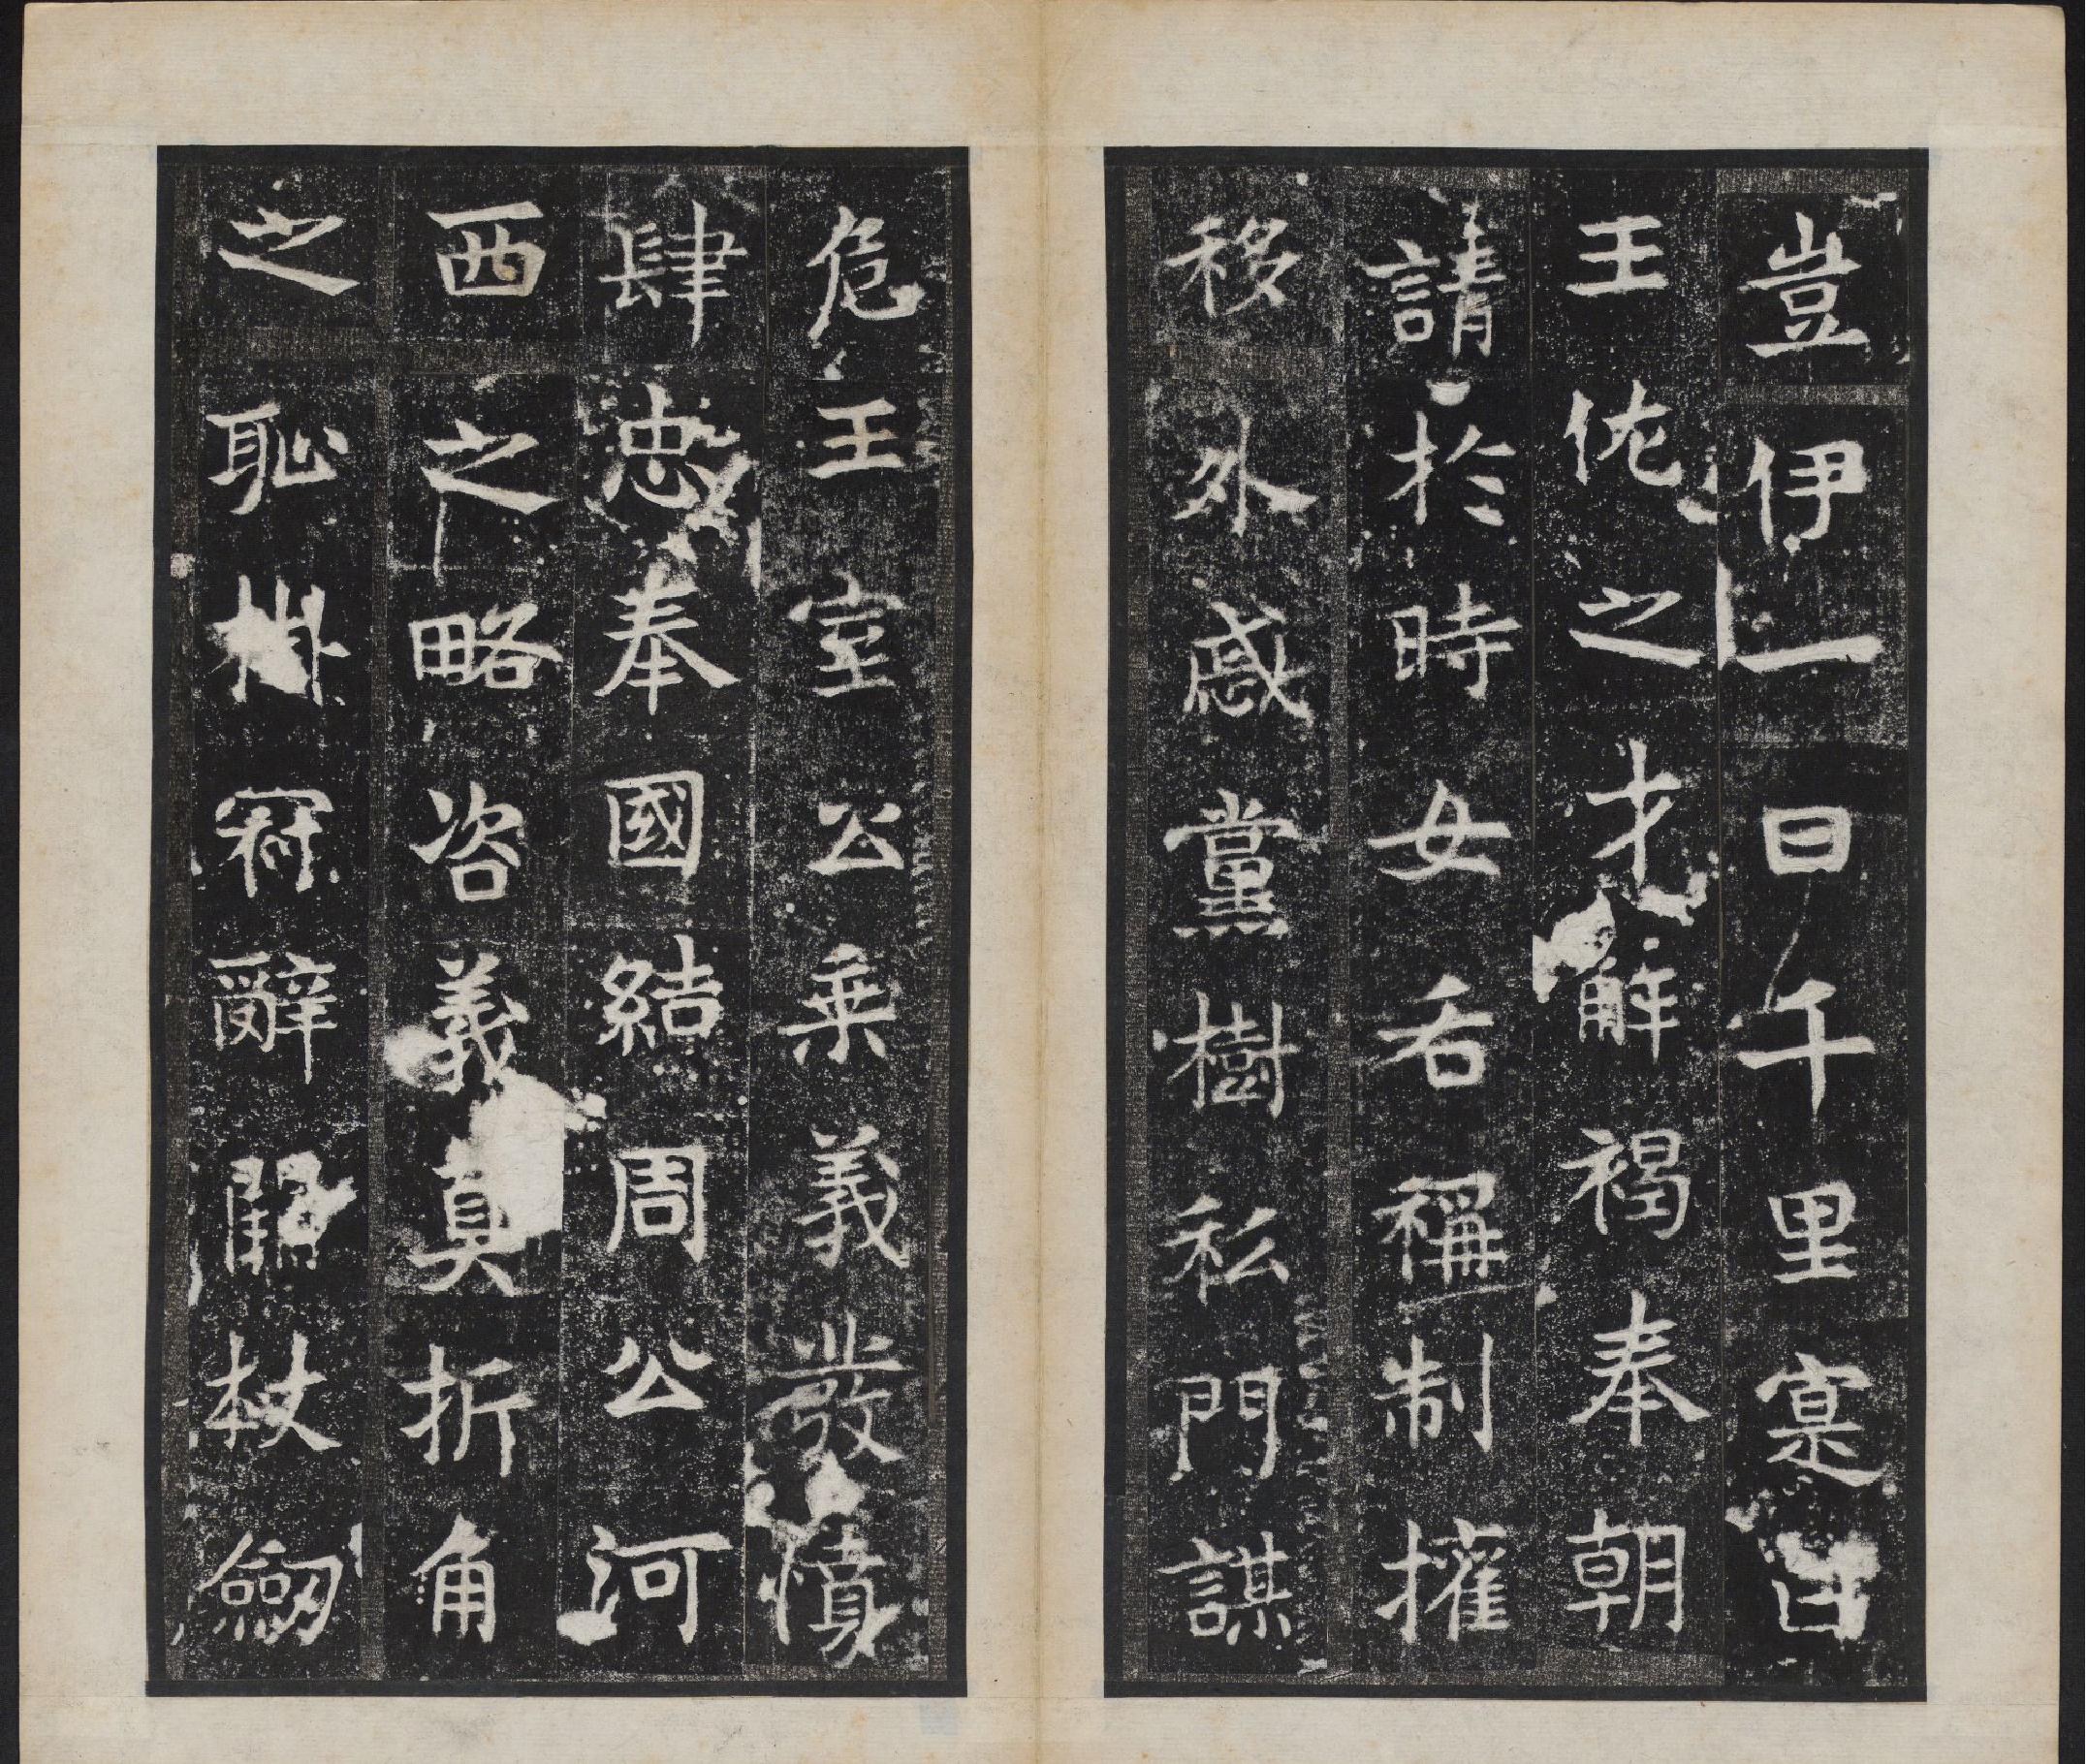 豈伊一日千里寔曰
王佐之才解褐奉朝
請於時女后稱制權
移外戚黨樹私門謀
危王室公乘義發憤
肆忠奉國結周公河
西之略咨義真折角
之恥掛冠辭關杖劒